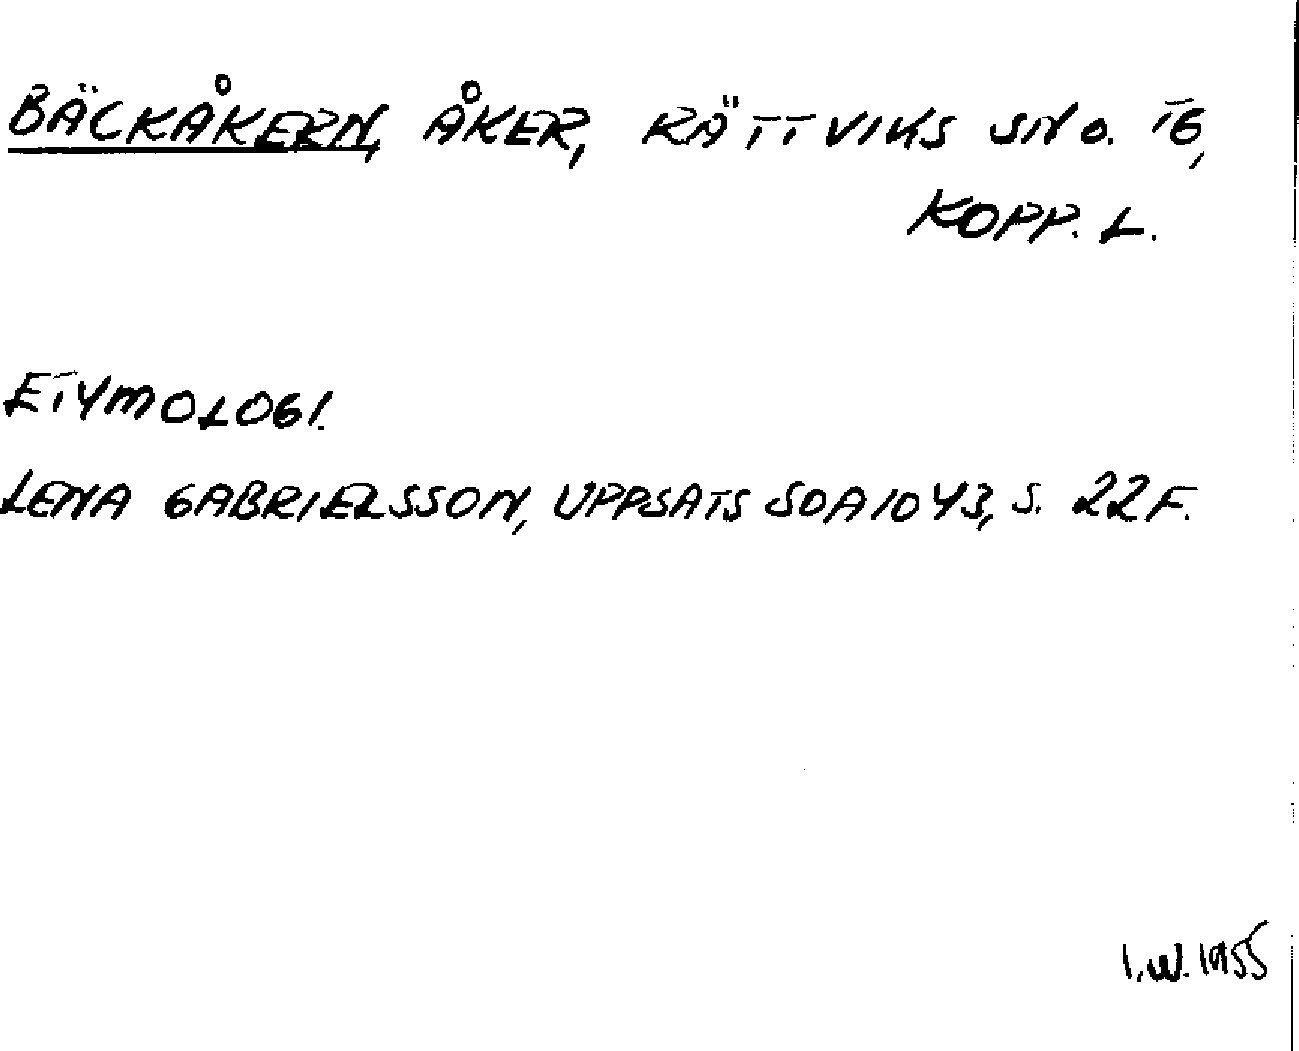 BÄCKÅKERN, ÅKER, RÄTTVIKS SN O. TG,
KOPP. L.
ETYMOLOGI.
LENA GABRIELSSON, UPPSATS SOA 1043, S. 22F.
I.W. 1955